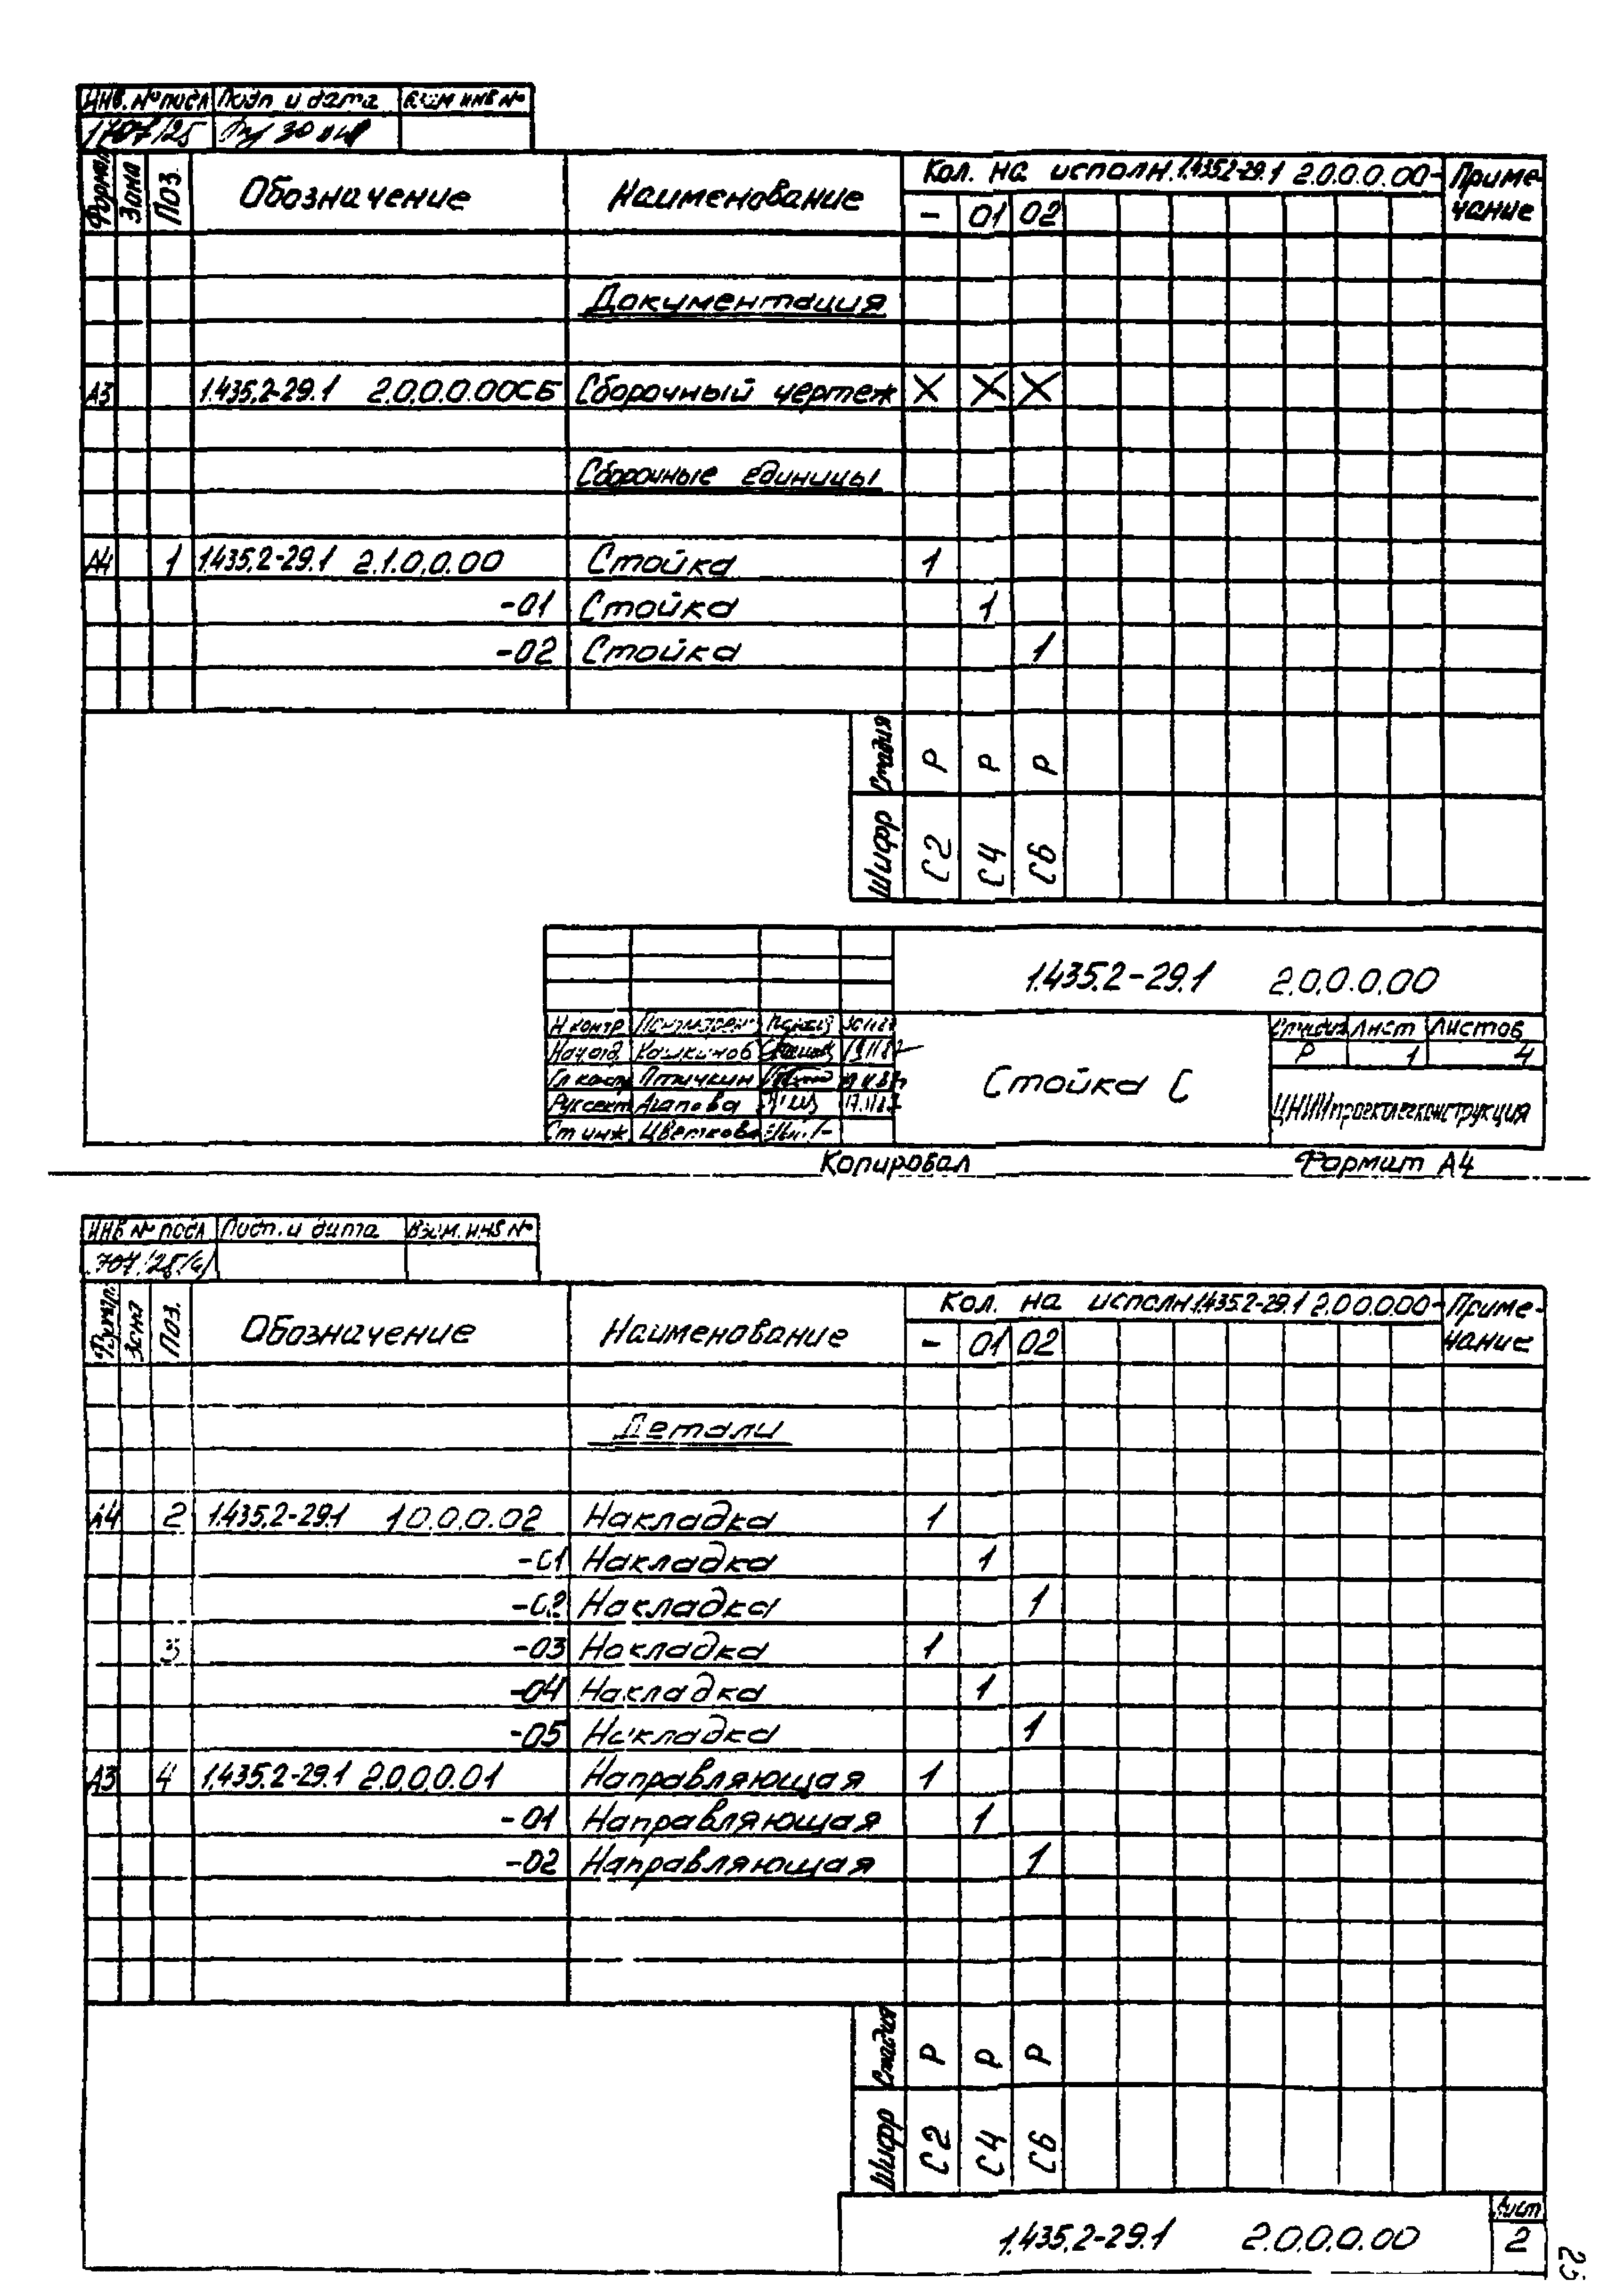 Инв. № подл Подп и дата Взам инв №
1707/25
Формат Зона Поз. Обозначение Наименование Кол. на исполн. 1.435.2-29.1 2.0.0.0.00- Приме-чание
- 01 02
Документация
А3 1.435.2-29.1 2.0.0.0.00СБ Сборочный чертеж X X X
Сборочные единицы
А4 1 1.435.2-29.1 2.1.0.0.00 Стойка 1
-01 Стойка 1
-02 Стойка 1
Стадия Р Р Р
Шифр С2 С4 С6
1.435.2-29.1 2.0.0.0.00
Н контр
Нач отд Кашкинов
Гл констр Птичкин
Рук сект Агапова
Ст инж Цветкова
Стойка С
Стадия Лист Листов
Р 1 4
ЦНИИпроектлегконструкция
Копировал Формат А4
Инв № подл Подп. и дата Взам. инв №
Формат Зона Поз. Обозначение Наименование Кол. на исполн 1.435.2-29.1 2.0.0.0.00- Приме-чание
- 01 02
Детали
А4 2 1.435.2-29.1 1.0.0.0.02 Накладка 1
-01 Накладка 1
-02 Накладка 1
3 -03 Накладка 1
-04 Накладка 1
-05 Накладка 1
А3 4 1.435.2-29.1 2.0.0.0.01 Направляющая 1
-01 Направляющая 1
-02 Направляющая 1
Стадия Р Р Р
Шифр С2 С4 С6
1.435.2-29.1 2.0.0.0.00
Лист
2